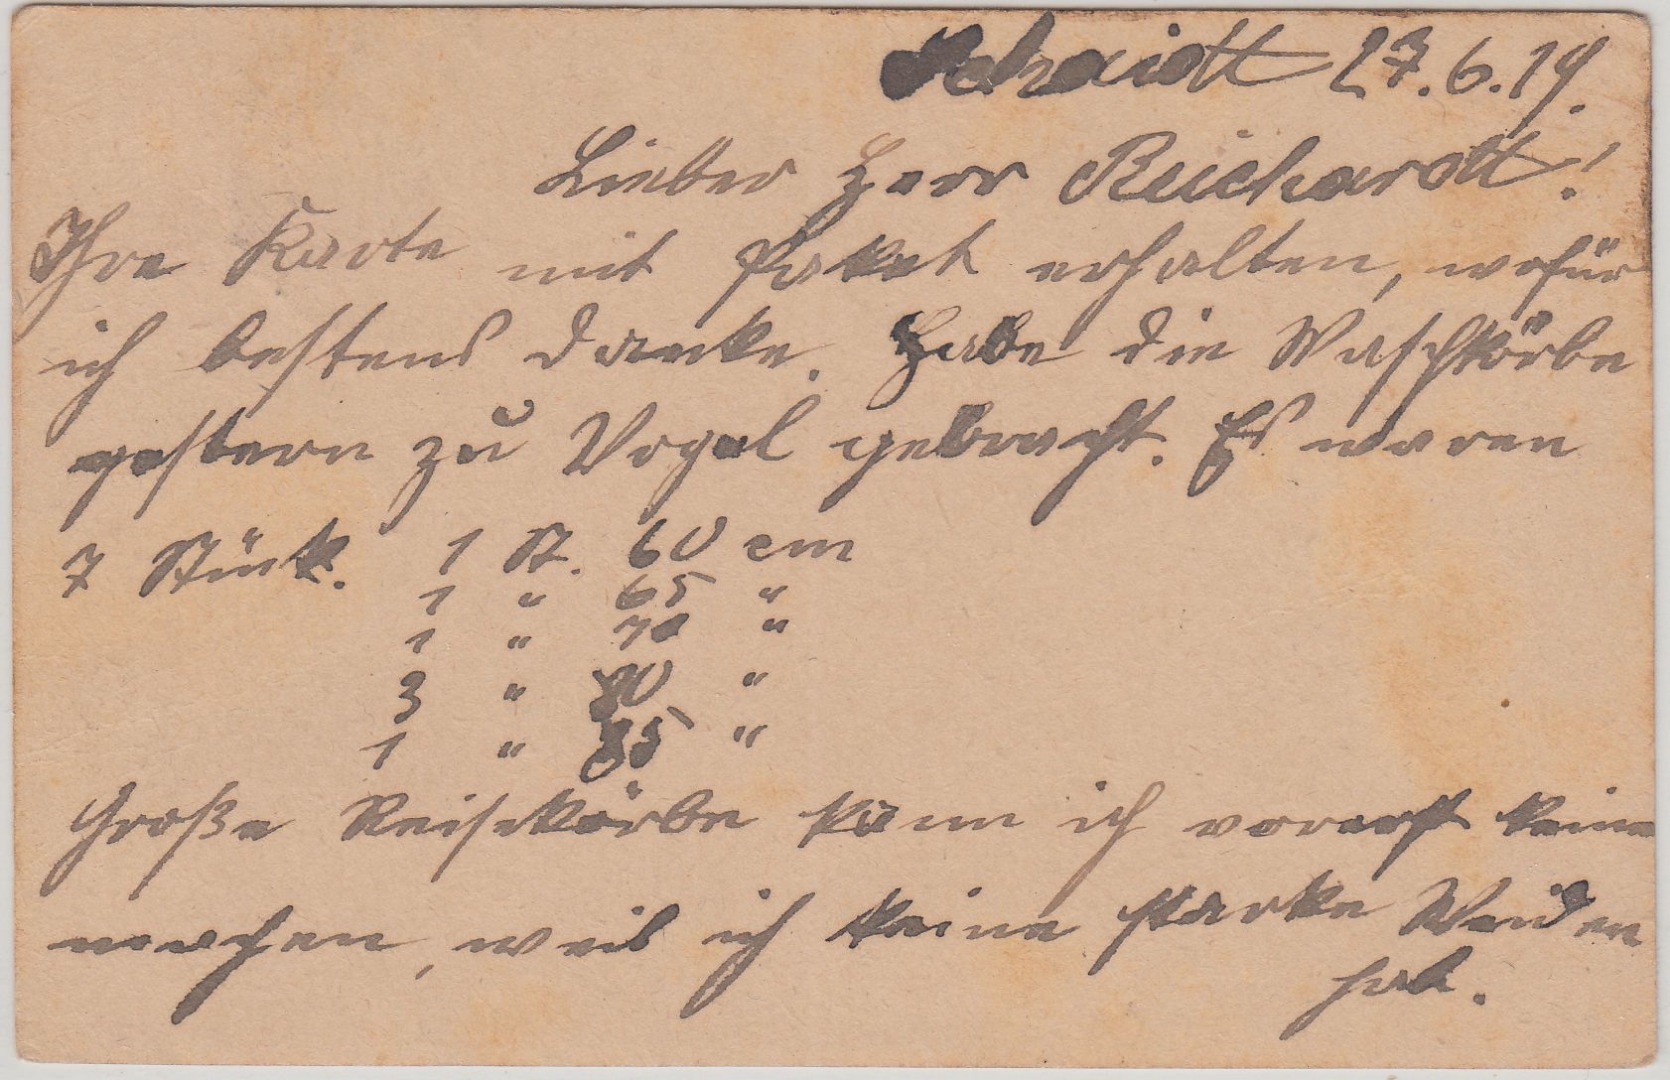 Schaidt 27.6.19.
Lieber Herr Reichardt!
Ihre Karte mit Paket erhalten, wofür
ich bestens danke. Habe die Waschkörbe
gestern zu Vogel gebracht. Es waren
7 Stück. 1 St. 60 cm
1 " 65 "
1 " 70 "
3 " 80 "
1 " 85 "
Große Reisekörbe kann ich vorerst keine
machen, weil ich keine starke Weiden
hab.